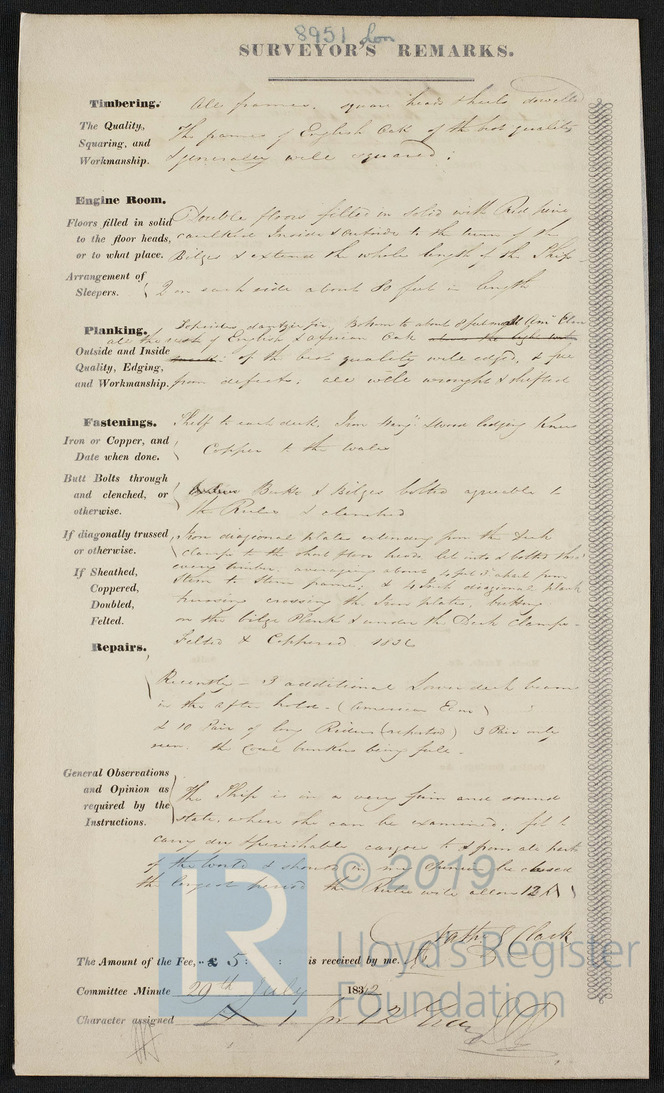 8951 Lon
SURVEYOR'S REMARKS.
Timbering. All frames, square heads & heels dowelled
The Quality, Squaring, and Workmanship. The frames of English Oak of the best quality
& generally well squared;
Engine Room.
Floors filled in solid to the floor heads, or to what place. Double floors filled in solid with Red pine
caulked Inside & outside to the turn of the
Bilges & extend the whole length of the Ship
Arrangement of Sleepers. 2 on each side about 80 feet in length
Planking. Topsides dantzic fir, Bottom to about 8 feet Am Elm
all the rest of English & African Oak
Outside and Inside Quality, Edging, and Workmanship. of the best quality well edged, & free
from defects; all well wrought & shifted
Fastenings. Shelf to each deck. Iron hang: Wood lodging Knees
Iron or Copper, and Date when done. Copper to the wales
Butt Bolts through and clenched, or otherwise. Butts & Bilges bolted agreeable to
the Rules & clenched
If diagonally trussed or otherwise. Iron diagonal plates extending from the Deck
clamps to the short floor heads let into & bolted thro'
If Sheathed, Coppered, Doubled, Felted. every timber, averaging about 4 feet apart from
Stem to Stern frames, & 4 Inch diagonal plank
trussing crossing the Iron plates, butting
on the bilge Plank & under the Deck Clamps
Felted & Coppered 1838
Repairs.
Recently - 3 additional Lower deck beams
in the after hold - (American Elm)
& 10 Pair of long Riders (reported) 3 Pair only
seen. the coal bunkers being full -
General Observations and Opinion as required by the Instructions. The Ship is in a very firm and sound
state, where she can be examined, fit to
carry dry & perishable cargoes to & from all parts
of the World & should in my opinion be classed
the longest period the Rules will allow 12 A
Nath. S Clark
The Amount of the Fee, .. £ 5 : : is received by me.
Committee Minute 29th July 1842
Character assigned A 1 for 12 Years
LR
© 2019
Lloyd's Register
Foundation